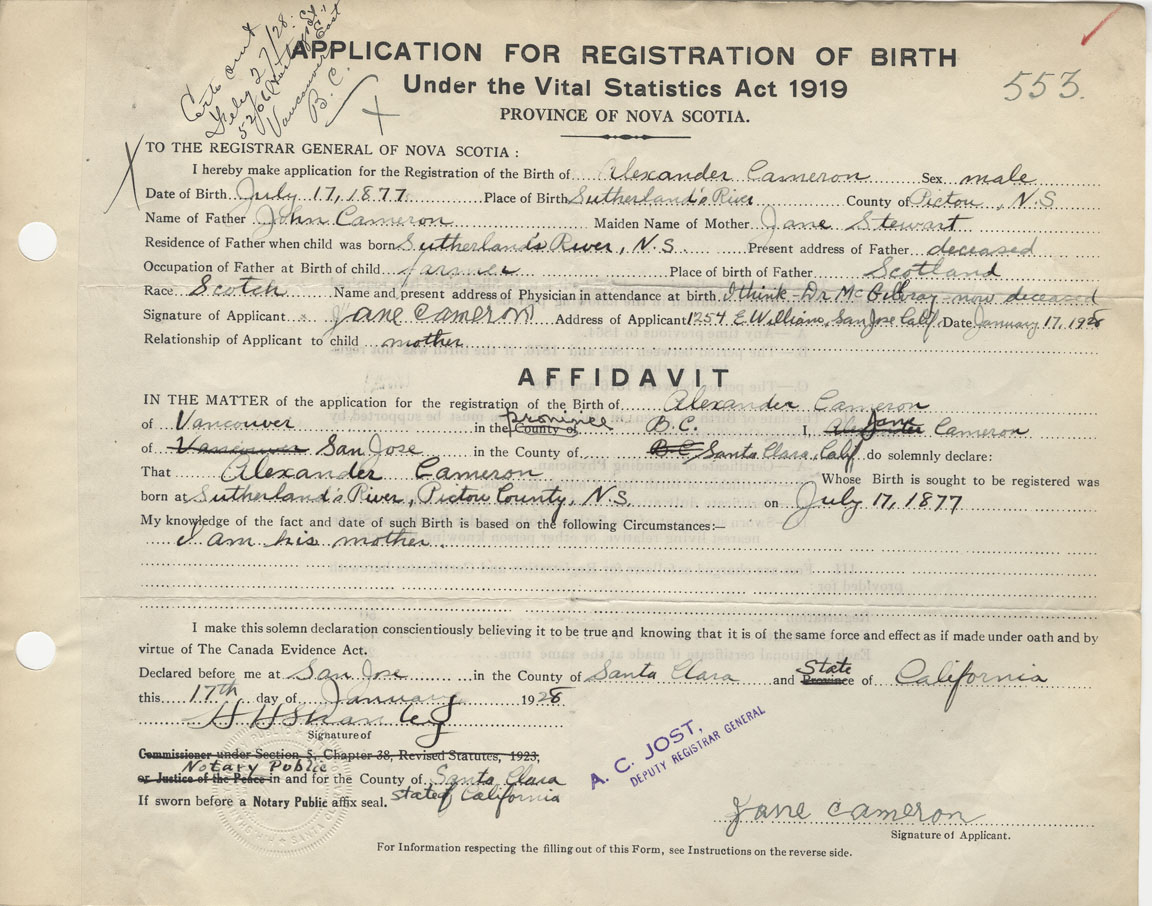 Certe out
Feby 27/28.
5206 Hastings St,
Vancouver East
B.C.
APPLICATION FOR REGISTRATION OF BIRTH
Under the Vital Statistics Act 1919
553.
PROVINCE OF NOVA SCOTIA.
TO THE REGISTRAR GENERAL OF NOVA SCOTIA :
I hereby make application for the Registration of the Birth of Alexander Cameron Sex male
Date of Birth July 17, 1877 Place of Birth Sutherland's River County of Pictou, N.S
Name of Father John Cameron Maiden Name of Mother Jane Stewart
Residence of Father when child was born Sutherland's River, N.S. Present address of Father deceased
Occupation of Father at Birth of child farmer Place of birth of Father Scotland
Race Scotch Name and present address of Physician in attendance at birth I think - Dr McGillray - now deceased
Signature of Applicant Jane Cameron Address of Applicant 1254 E William, San Jose Calif. Date January 17, 1928
Relationship of Applicant to child mother
AFFIDAVIT
IN THE MATTER of the application for the registration of the Birth of Alexander Cameron
of Vancouver in the County of province B.C. I, Alexander Jane Cameron
of Vancouver San Jose in the County of B.C. Santa Clara, Calif. do solemnly declare:
That Alexander Cameron Whose Birth is sought to be registered was
born at Sutherland's River, Pictou County, N.S. on July 17, 1877
My knowledge of the fact and date of such Birth is based on the following Circumstances:—
I am his mother.
I make this solemn declaration conscientiously believing it to be true and knowing that it is of the same force and effect as if made under oath and by
virtue of The Canada Evidence Act.
Declared before me at San Jose in the County of Santa Clara and Province State of California
this 17th day of January 1928
Signature of
Commissioner under Section 5, Chapter 38, Revised Statutes, 1923,
Notary Public
or Justice of the Peace in and for the County of Santa Clara
If sworn before a Notary Public affix seal. State of California
A. C. JOST,
DEPUTY REGISTRAR GENERAL
Jane Cameron
Signature of Applicant.
For Information respecting the filling out of this Form, see Instructions on the reverse side.